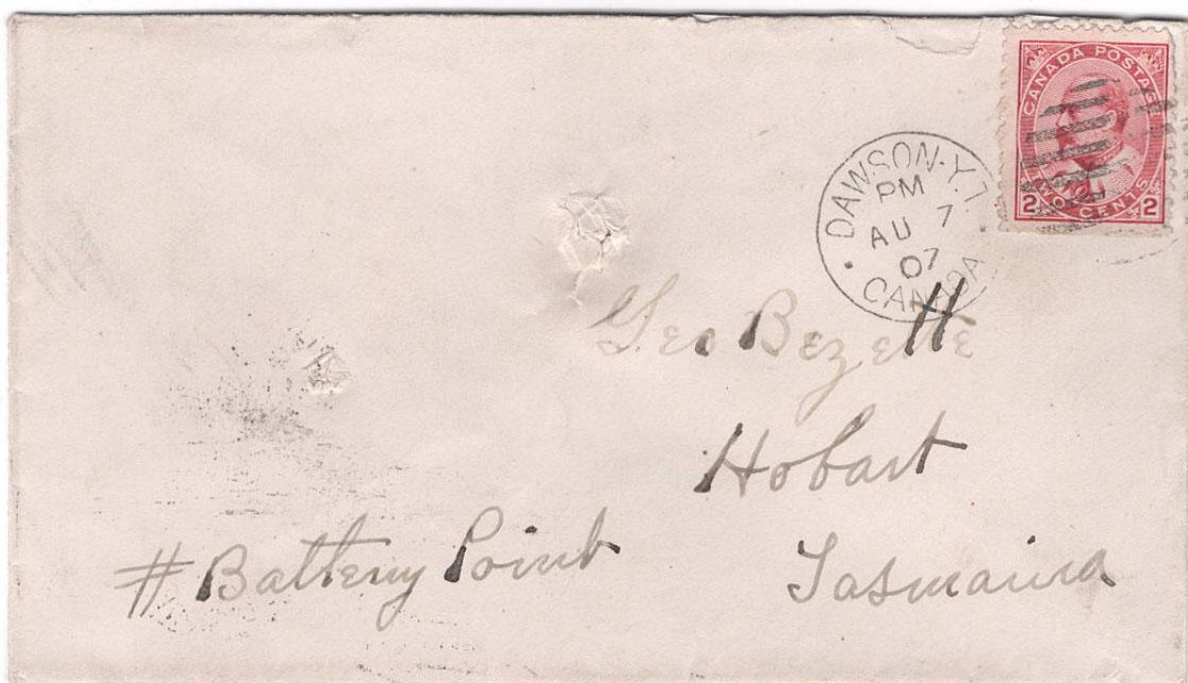 CANADA POSTAGE
2 TWO CENTS 2
DAWSON·Y.T
PM
AU 7
07
CANADA
Geo Bezette
Hobart
# Battery Point
Tasmania